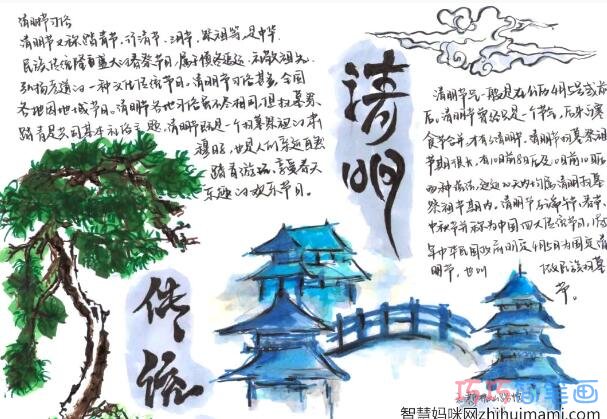 清明节习俗
清明节又称踏青节、行清节、三月节、祭祖节,是中华
民族传统隆重盛大的春祭节日,属于慎终追远、礼敬祖先、
弘扬孝道的一种文化传统节日。清明节习俗甚多,全国
各地因地域节日。清明节各地习俗虽不相同,但扫墓祭
踏青是共同基本礼俗主题。清明节既是一个扫墓祭祖的肃
穆节日,也是人们亲近自然
踏青游玩、享受春天
乐趣的欢乐节日。
清明
传统
清明节一般是在公历4月5号前
后,清明节
食节合并,才有的清明节。清明扫墓祭
节期很长,有10日前8日后及10日前10日后
两种说法,这近20天内均属清明扫墓
祭祖节期内。清明节与端午节、春节、
中秋节并称为中国四大传统节日,
年中华民国政府明定4月5日为国定清
明节,也叫 做民族扫墓
节。
巧巧简笔画
智慧妈咪网zhihuimami.com